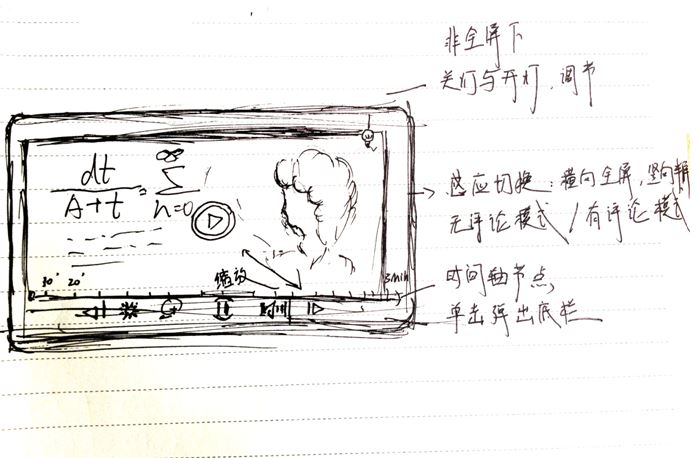 非全屏下
关灯与开灯，调节
dt
A+t
=
∞
Σ
n=0
感应切换：横向全屏，竖向
无评论模式 / 有评论模式
缩放
30' 20'
3min
时间轴节点，
单击弹出底栏
时间